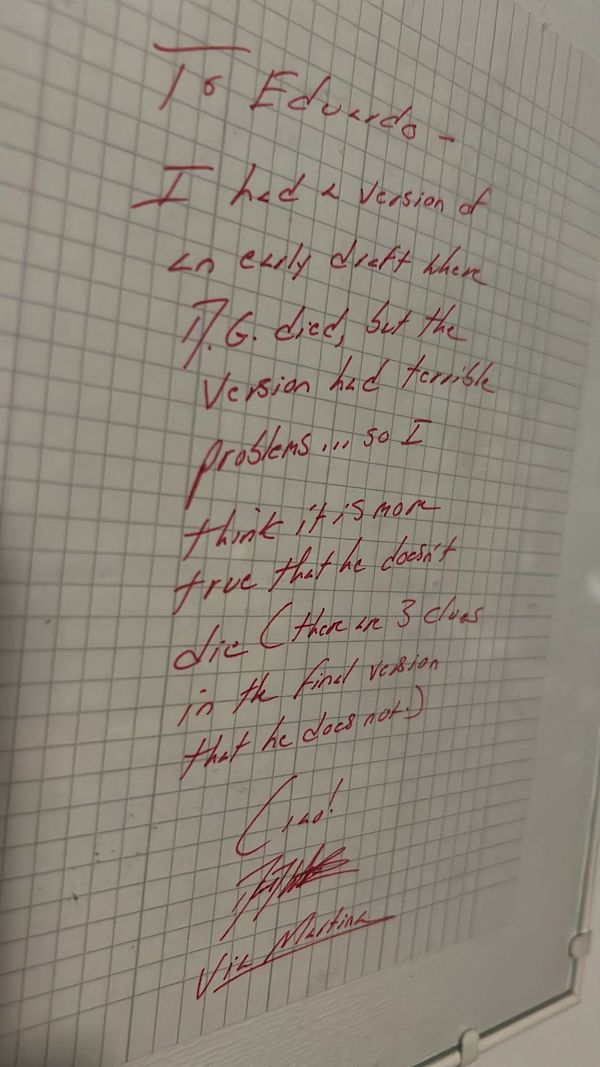 To Eduardo -
I had a version of
an early draft where
D.G. died, but the
version had terrible
problems... so I
think it is more
true that he doesn't
die (there are 3 clues
in the final version
that he does not.)
Ciao!
Via Martina